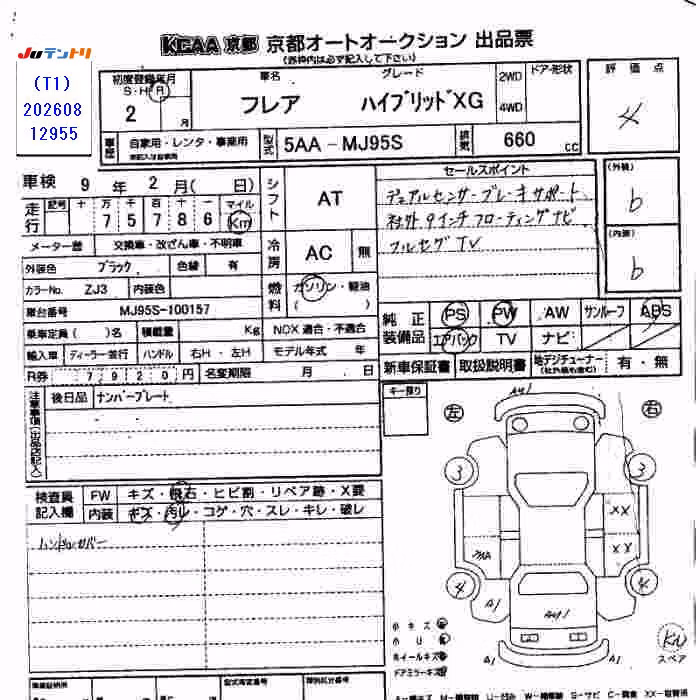 JUテントリ
(T1)
202608
12955
KCAA 京都 京都オートオークション 出品票
(赤枠内は必ず記入して下さい)
初度登録年月 車名 グレード 2WD ドア・形状 評価点
S・H・R
2 月 フレア ハイブリッドXG 4WD 4
車歴 自家用・レンタ・事業用 型式 5AA-MJ95S 排気 660 cc
車検 9年 2月( 日) シフト AT セールスポイント (外装)
走行 記号 十 万 千 百 十 一 マイル
7 5 7 8 6 Km
デュアルセンサーブレーキサポート
社外9インチフローティングナビ
フルセグTV
b
(内装)
b
メーター替 交換車・改ざん車・不明車 冷房 AC 無
外装色 ブラック 色替 有
カラーNo. ZJ3 内装色 燃料 ガソリン・軽油
( )
車台番号 MJ95S-100157
純正装備品 PS PW AW サンルーフ ABS
エアバック TV ナビ
乗車定員( )名 積載量 Kg NOX 適合・不適合
輸入車 ディーラー・並行 ハンドル 右H・左H モデル年式 年
新車保証書 取扱説明書 地デジチューナー(社外品も含む) 有・無
R券 7920円 名変期限 月 日
キー預り
注意事項(出品店記入)
後日品 ナンバープレート
左 右
検査員記入欄 FW キズ・飛石・ヒビ割・リペア跡・X要
内装 キズ・汚レ・コゲ・穴・スレ・キレ・破レ
ハンドルカバー
AU1
3 3
XX
XX
4 4
A1
AU1
A1 A1
小キズ
小U
ホイールキズ
ドアミラーキズ
スペア